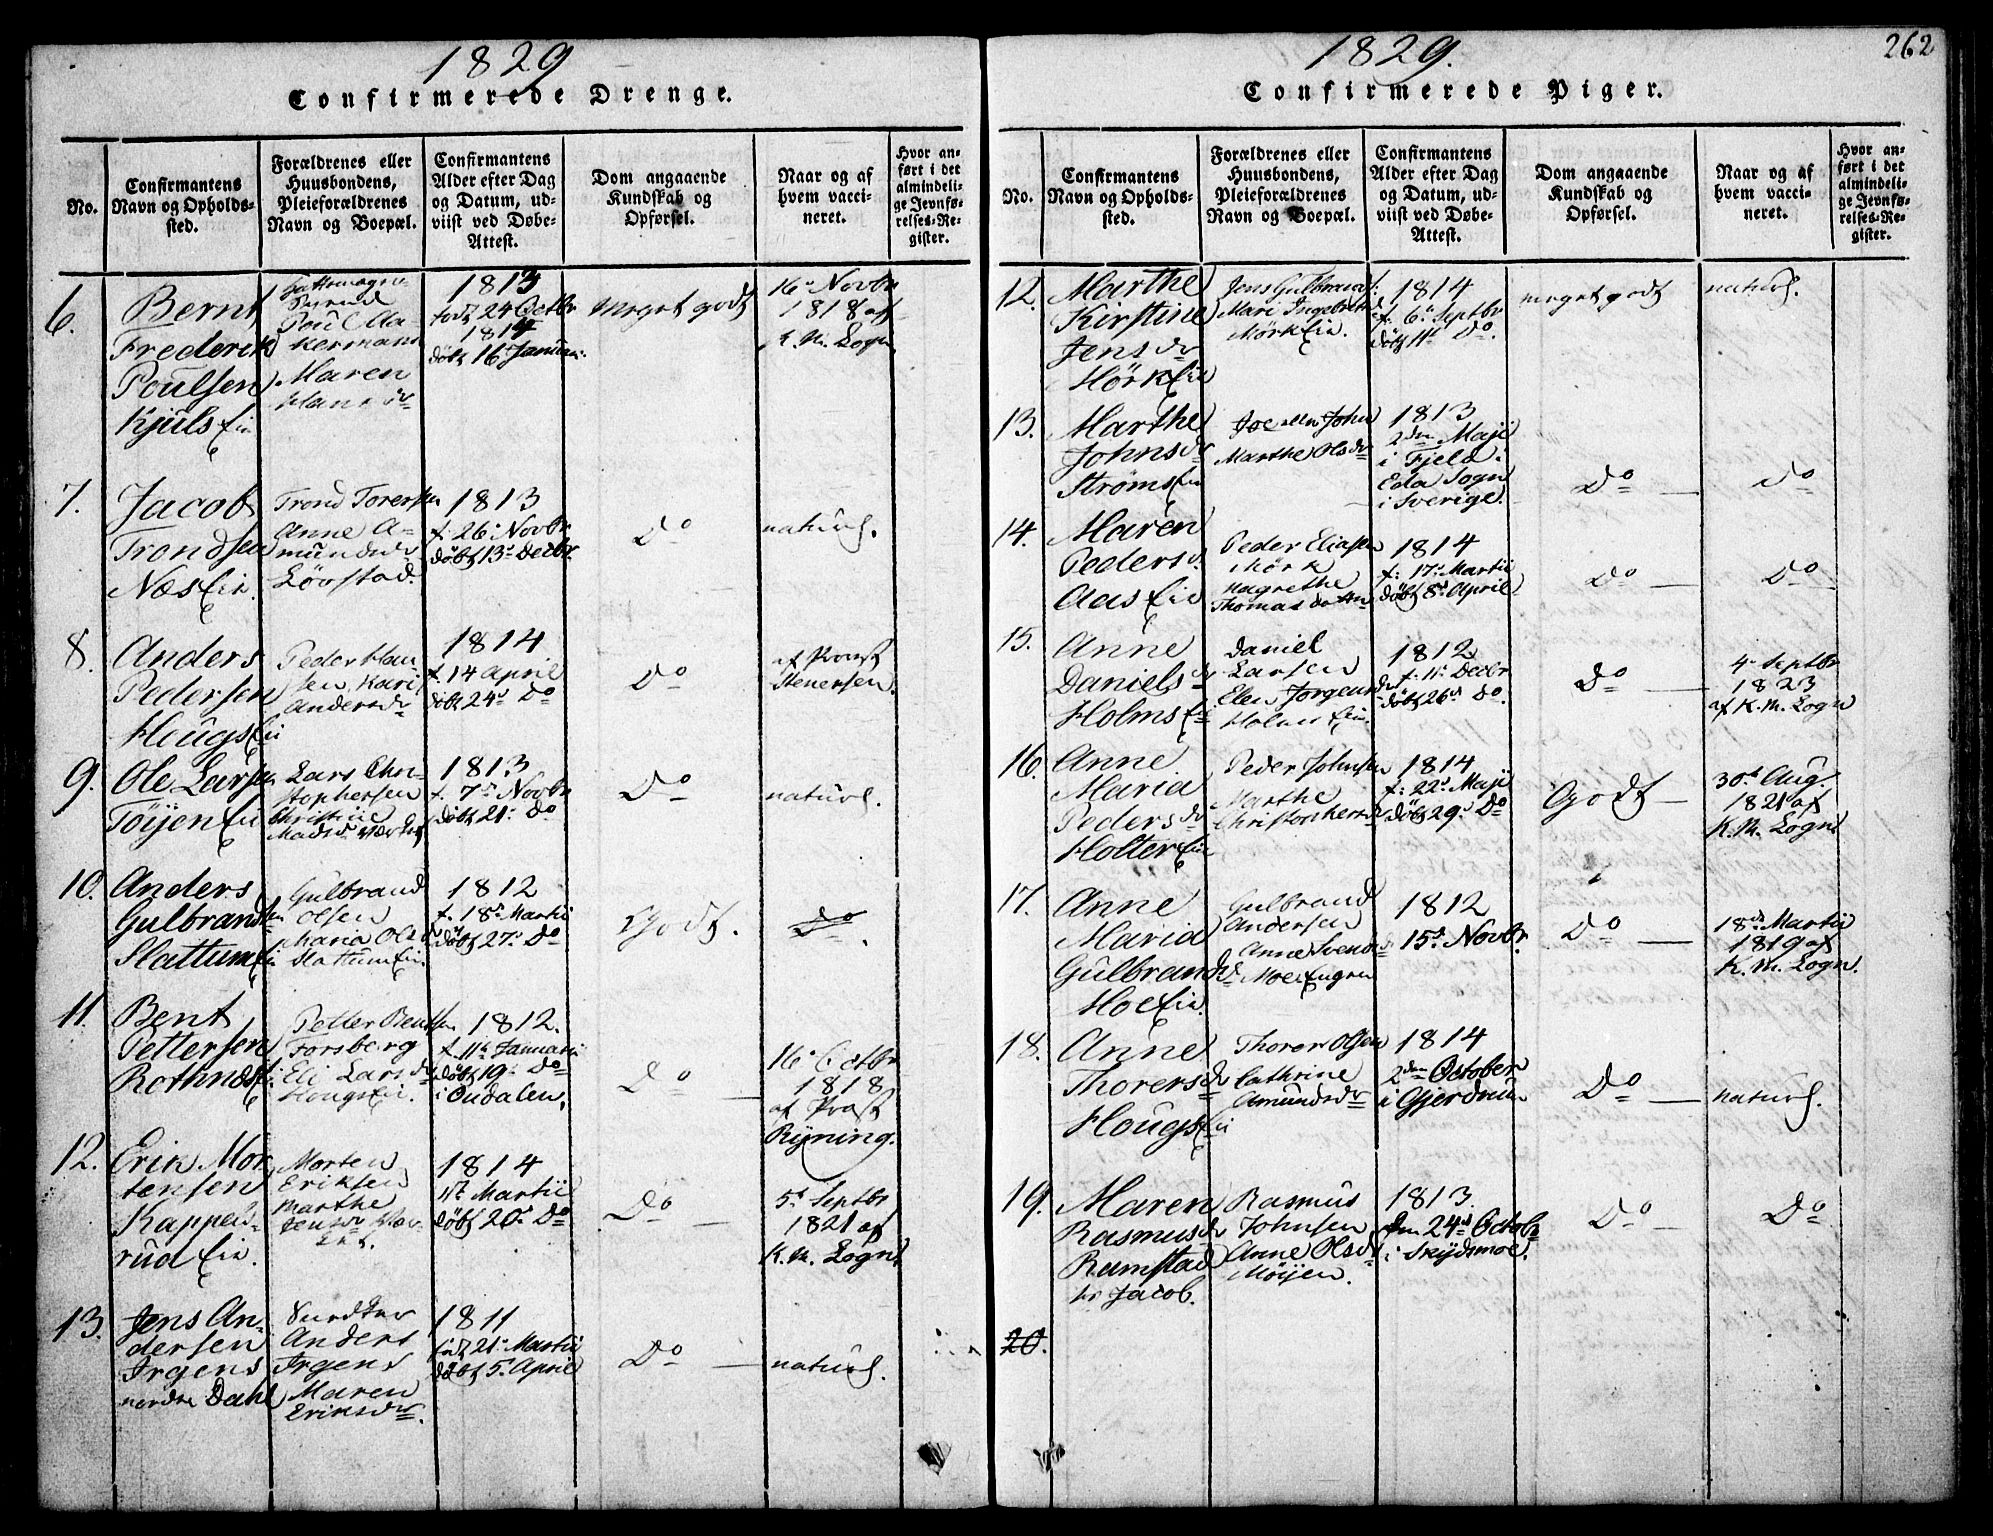 1829
Confirmerede Drenge.
No.
Confirmantens
Navn og Opholds-
sted.
Forældrenes eller
Huusbondens,
Pleieforældrenes
Navn og Boepæl.
Confirmantens
Alder efter Dag
og Datum, ud-
viist ved Døbe-
Attest.
Dom angaaende
Kundskab og
Opførsel.
Naar og af
hvem vacci-
neret.
Hvor an-
ført i det
almindeli-
ge Jevnfø-
relses-Re-
gister.
6.
Bernt
Frederik
Poulsen
Kjuls Ei
Poul Ma-
Maren
1813
født 24 Octbr
1814
døbt 16 Januar.
Meget godt
16 Novbr
1818 af
K. M. Logn
7.
Jacob
Trondsen
Næs Ei.
Trond Torersen
Anne A-
mundsdr
Løvstad.
1813
f. 26 Novbr
døbt 13 Decbr.
Do
naturl.
8.
Anders
Pedersen
Hougs Ei
Peder Han-
sen, Kari
Andersdr
1814
f. 14 April
døbt 24 Do
Do
af Provst
Stenersen.
9.
Ole Larsen
Töijen Ei
Lars Chri-
stophersen
Christine
Madsdr
1813
f. 7 Novbr
døbt 21 Do
Do
naturl.
10.
Anders
Gulbrandsen
Slattum Ei.
Gulbrand
Olsen
Maria Olsdr
Slattum Ei.
1812
f. 18 Martii
døbt 27 Do
Godt.
Do
11.
Bent
Pettersen
Rothnæs Ei.
Petter Bentsen
Forsberg
Eli Larsdr
Hougs Ei.
1812.
f. 11 Januarii
døbt 19 Do
i Oudalen.
Do
16 Octbr
1818
af Provst
Rÿning.
12.
Erik Mor
tensen
Kappels-
rud Ei.
Morten
Eriksen
Marthe
Jensdr
1814
Martii
døbt 20 Do
Do
5 Septbr
1821 af
K. M. Logn
13.
Jens An-
dersen
Irgens
nordre Dahl
Anders
Irgens
Maren
Eriksdr.
1811
født 21 Martii
døbt 5 April
Do
naturl.
1829.
262
Confirmerede Piger.
No.
Confirmantens
Navn og Opholds-
sted.
Forældrenes eller
Huusbondens,
Pleieforældrenes
Navn og Boepæl.
Confirmantens
Alder efter Dag
og Datum, ud-
viist ved Døbe-
Attest.
Dom angaaende
Kundskab og
Opførsel.
Naar og af
hvem vacci-
neret.
Hvor an-
ført i det
almindeli-
ge Jevnfø-
relses-Re-
gister.
12.
Marthe
Kirstine
Jensdr
Mörk Ei
Jens Gulbrand
Mari Ingebret
Mörk Ei.
1814
f. 6 Septbr
døbt 11 Do.
meget godt
naturl.
13.
Marthe
Johnsdr
Ströms Ei
Joe eller John
Marthe Olsdr
1813
2den Maji
i Fjeld
Eda Sogn
i Sverige.
Do
Do
14.
Maren
Pedersdr
Aas Ei
Peder Eliasen
Mörk
Magrethe
Thomasdatter
1814
f. 17 Martii
døbt 8 April
Do
Do
15.
Anne
Danielsdr
Holms Ei
Daniel
Larsen
Elen Jorgensdr
Holms Ei.
1812
f. 11 Decbr
døbt 26 Do
Do
4 Septbr
1823
af K. M. Logn
16.
Anne
Maria
Pedersdr
Holter Ei
Peder Johnsen
Marthe
Christophersdr
1814
f. 22 Maji
døbt 29 Do
Godt
30 Aug.
1821 af
K. M. Logn
17.
Anne
Maria
Gulbrandsdr
Moe Ei
Gulbrand
Andersen
Anne Svendsdr
Moe Eugen
1812
15 Novbr
Do
18 Martii
1819 af
K. M. Logn.
18.
Anne
Thorersdr
Hougs Ei
Thorer Olsen
Cathrine
Amundsdr
1814
2den October
i Gjerdrum
Do
naturl.
19.
Maren
Rasmusdr
Ramstad
hr Jacob.
Rasmus
Johnsen
Anne Olsdr
Möijen.
1813
den 24 Octob
i Skÿdsmoe.
Do
Do
20.